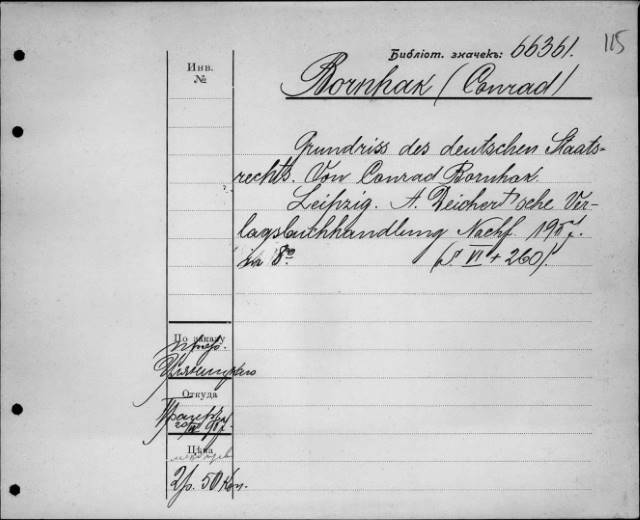 115
Библіот. значекъ: 66361.
Инв.
№
Bornhak (Conrad)
Grundriss des deutschen Staats-
rechts. Von Conrad Bornhak.
Leipzig. A. Deichert'sche Ver-
lagsbuchhandlung Nachf. 1907.
in 8º. (S. VI + 260).
По заказу
проф.
Откуда
Цѣна
2р. 50 коп.